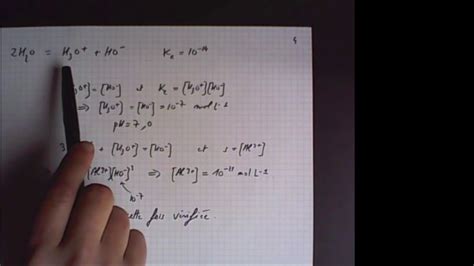 4
2H₂O = H₃O⁺ + HO⁻ K₂ = 10⁻¹⁴
₃O⁺] = [HO⁻] et K₂ = [H₃O⁺][HO⁻]
⇒ [H₃O⁺] = [HO⁻] = 10⁻⁷ mol L⁻¹
pH = 7,0
3 + [H₃O⁺] = [HO⁻] et s = [Al³⁺]
[Al³⁺][HO⁻]³ ⇒ [Al³⁺] = mol L⁻¹
10⁻⁷
fois vérifiée.